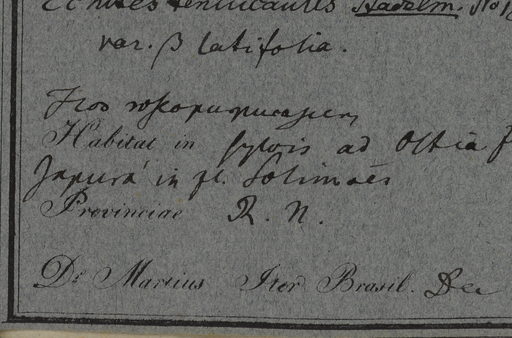 Echites tenuicaulis Stadelm. No
var. β latifolia.
Flos
Habitat in sylvis ad Ostia f
Japurá in fl. Solimoës
Provinciae R. N.
Dr Martius Iter Brasil. Dec